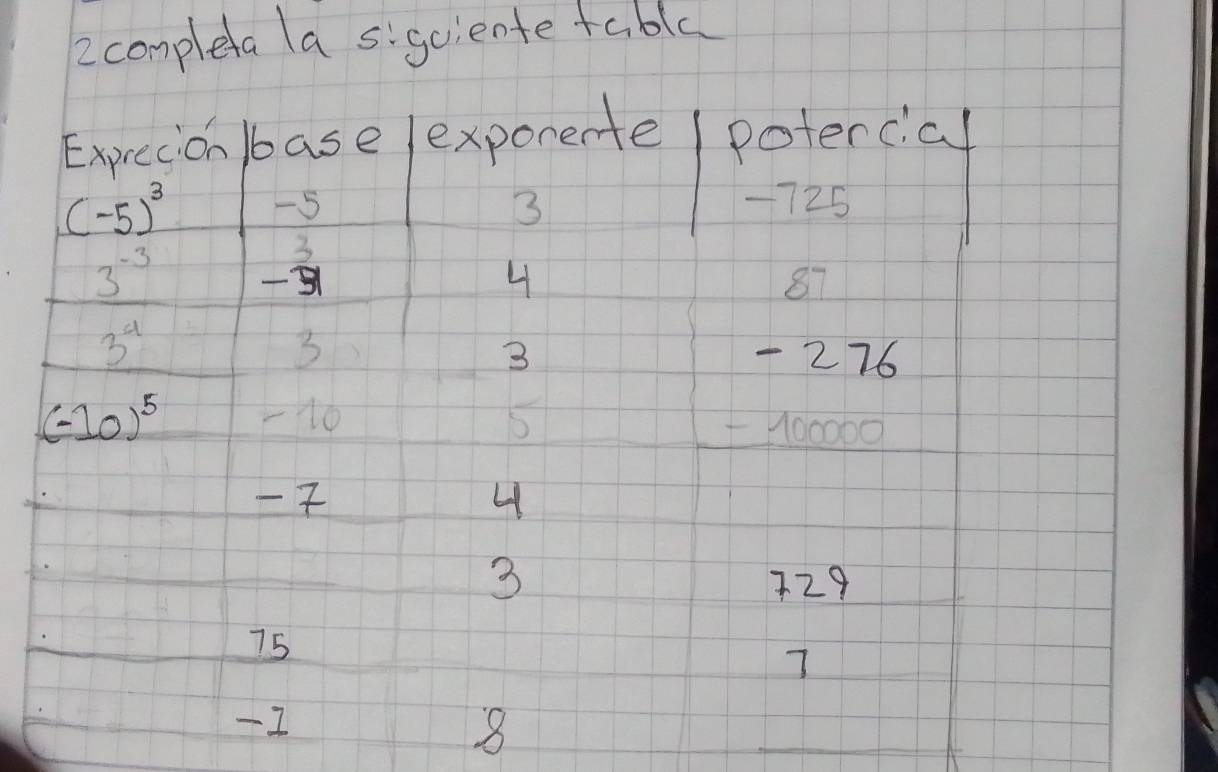 2 completa la siguiente tabla
Expreción base exponente potencial
(-5)³ -5 3 -725
3⁻³ 4 87
3⁴ 3 3 -276
(-10)⁵ -10 5 -100000
-7 4
3 729
75 7
-1 8